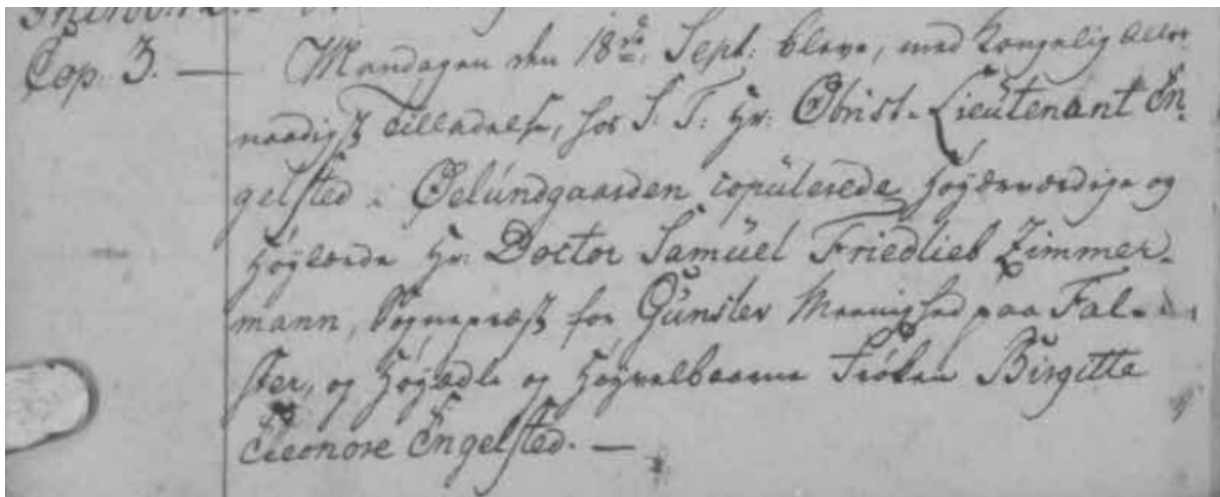 Cop. 3. — Mandagen den 18de Sept: bleve, med Kongelig Aller
naadigst Tilladelse, hos S: T: Hr: Obrist-Lieutenant En
gelsted i Øelundgaarden copulerede Høyærværdige og
Høylærde Hr: Doctor Samüel Friedlieb Zimmer-
mann, Sognepræst for Gunslev Meenighed paa Fal-
ster, og Høyædle og Høyvelbaarne Frøken Birgitte
Eleonore Engelsted. —